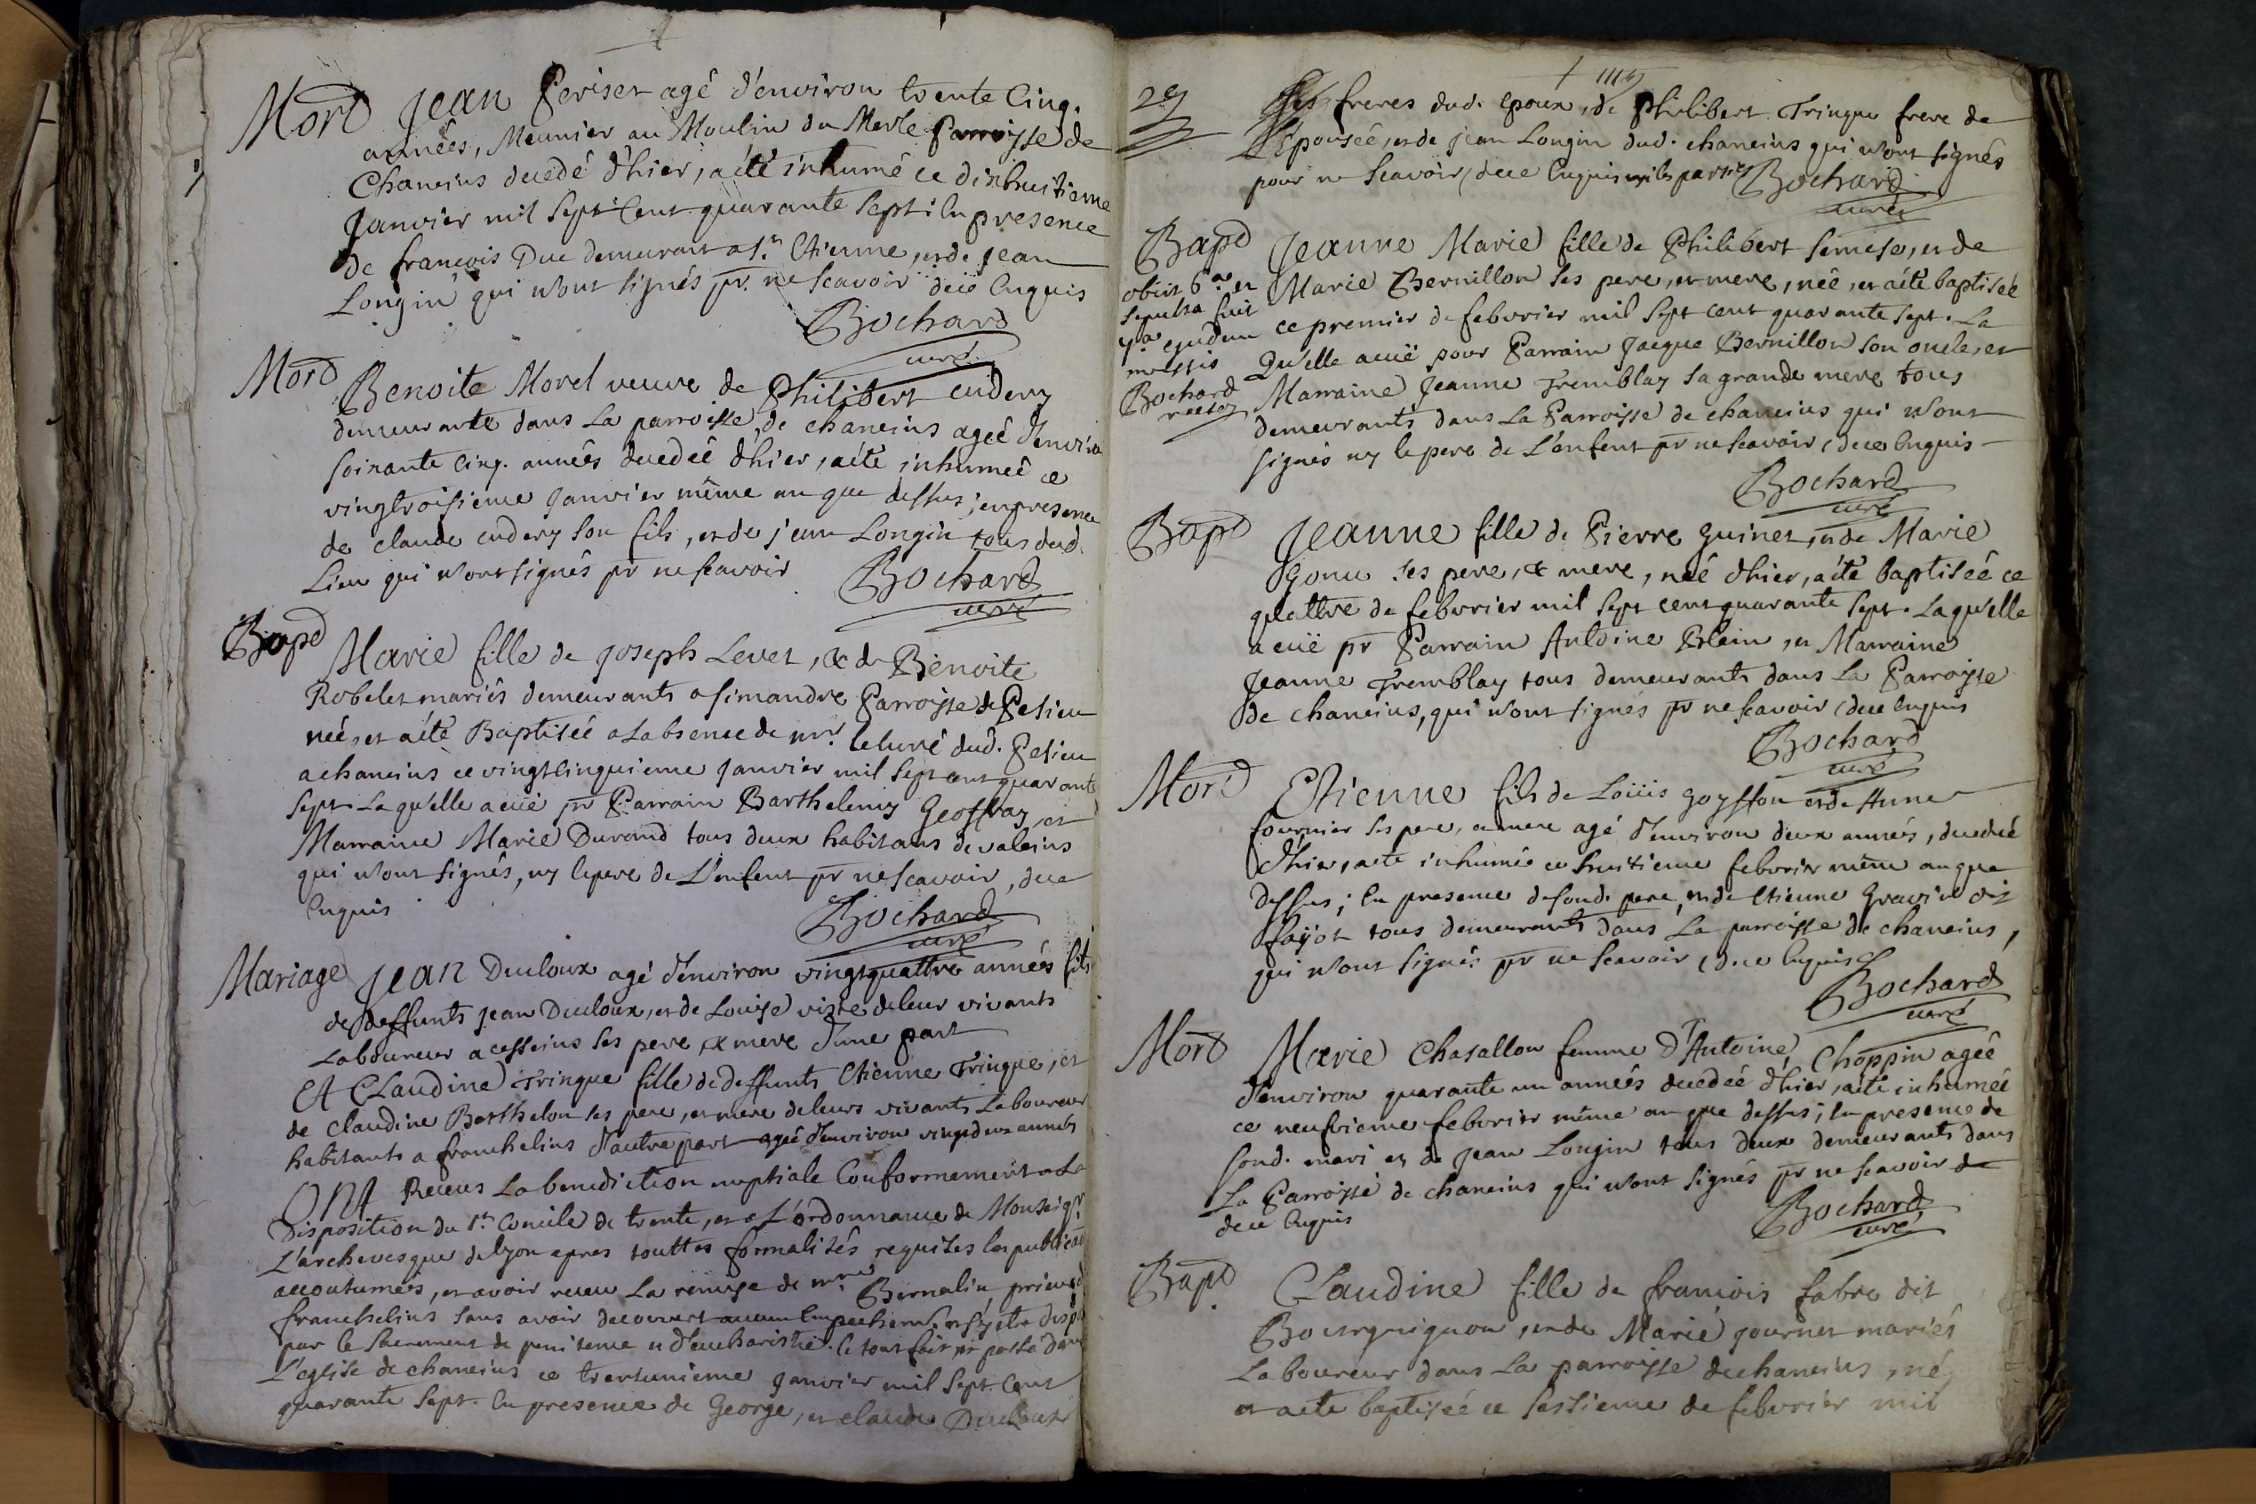 Mort Jean Periset agé d'environ trente Cinq.
années, Meunier au Moulin du Merle Parroisse de
Chaneins decedé d'hier, a été inhumé ce dixhuitieme
Janvier mil sept Cent quarante sept; En presence
de francois Duc demeurant a St. Etienne, et de Jean
Longin qui n'ont signés pr. ne scavoir dece Enquis
Bochard
curé
Mort Benoite Morel veuve de Philibert
demeurante dans La parroisse de chaneins ageé d'environ
soixante Cinq. années decedée d'hier, a été inhumeé ce
vingtroisieme Janvier même an que dessus; en presence
de claude son fils, et de jean Longin tous dud.
Lieu qui n'ont signés pr ne scavoir Bochard
curé
Bapt Marie fille de Joseph Levet, & de Benoite
Robelet mariés demeurants a simandre Parroisse de Pesieu
neé, et a été Baptisée a Labsence de mr. le Curé dud. Pesieu
a chaneins ce vingtcinquieme Janvier mil sept cent quarante
sept. La qu'elle a eüe pr Parrain Barthelemy Geoffray, et
Marraine Marie Durand tous deux habitans de valeins
qui n'ont signés, ny le pere de L'enfent pr ne scavoir, dece
Enquis
Bochard
curé
Mariage Jean Ducloux agé d'environ vingtquattre années fils
de deffunts Jean Ducloux, et de Louise de leur vivants
Laboureur a cesseins ses pere, & mere d'une part
Et Claudine Tringue fille de deffunts Etienne Tringue, et
de claudine Berthelon ses pere, et mere de leurs vivants Laboureur
habitants a franchelins d'autre part ageé d'environ vingtdeux années
Ont Receus La benediction nuptiale Conformement a La
Disposition du St. Concile de trente, et a L'ordonnance de Monseigr.
L'archevesque de lyon apres touttes formalités requises les publicaõ
accoutumées, et avoir receu La remise de mre. Bernalin prieur d
franchelins sans avoir decouvert aucun Empechem.
par le sacrement de penitence et d'eucharistie. le tout fait et passé dans
L'eglise de chaneins ce trentunieme Janvier mil sept Cent
quarante sept. En presence de George, et claude Ducloux
29
freres dud. epoux, de Philibert Tringue frere de
L'Epouseé, et de jean Longin dud. chaneins qui n'ont signés
pour ne scavoir, dece Enquis Bochard
curé
Bapt Jeanne Marie fille de Philibert , et de
obiit 6a et Marie Bernillon ses pere, et mere, neé, et a été baptisée
sepulta fuit ce premier de febvrier mil sept cent quarante sept. La
7a ejusdem Qu'elle a eüe pour Parrain Jacque Bernillon son oncle, et
mensis Marraine Jeanne Tremblay sa grande mere tous
Bochard demeurants dans La Parroisse de chaneins qui n'ont
rector signés ny le pere de L'enfent pr ne scavoir, dece Enquis
Bochard
curé
Bapt Jeanne fille de Pierre guinet, et de Marie
Gonu ses pere, & mere, neé d'hier, a été baptiseé ce
quattre de febvrier mil sept cent quarante sept. La qu'elle
a eüe pr Parrain Antoine Blein, et Marraine
Jeanne Tremblay tous demeurants dans La Parroisse
de chaneins, qui n'ont signés pr ne scavoir, dece Enquis
Bochard
curé
Mort Etienne fils de Loüis goyffon et de Anne
fournier ses pere, et mere agé d'environ deux années, decedé
d'hier, a été inhumé ce huitieme febvrier même an que
dessus; En presence de sond. pere, et de Etienne Gravir dit
fayot tous demeurants dans La parroisse de chaneins,
qui n'ont signés pr ne scavoir, dece Enquis
Bochard
curé
Mort Marie Chasallon femme D'Antoine Choppin ageé
d'environ quarante un annees decedeé d'hier, a été inhumeé
ce neufvieme febvrier même an que dessus; En presence de
sond. mari et de Jean Longin tous deux demeurants dans
La Parroisse de chaneins qui n'ont signés pr ne scavoir de
dece Enquis
Bochard
curé
Bapt Claudine fille de francois fabre dit
Bourguignon, et de Marie journet mariés
Laboureur dans La parroisse de chaneins, né
et a été baptiseé ce de febvrier mil